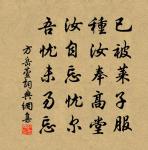 已被莱子服
種汝奉高堂
汝自忘忧尔
吾忧未易忘
方岳萱詞典網集